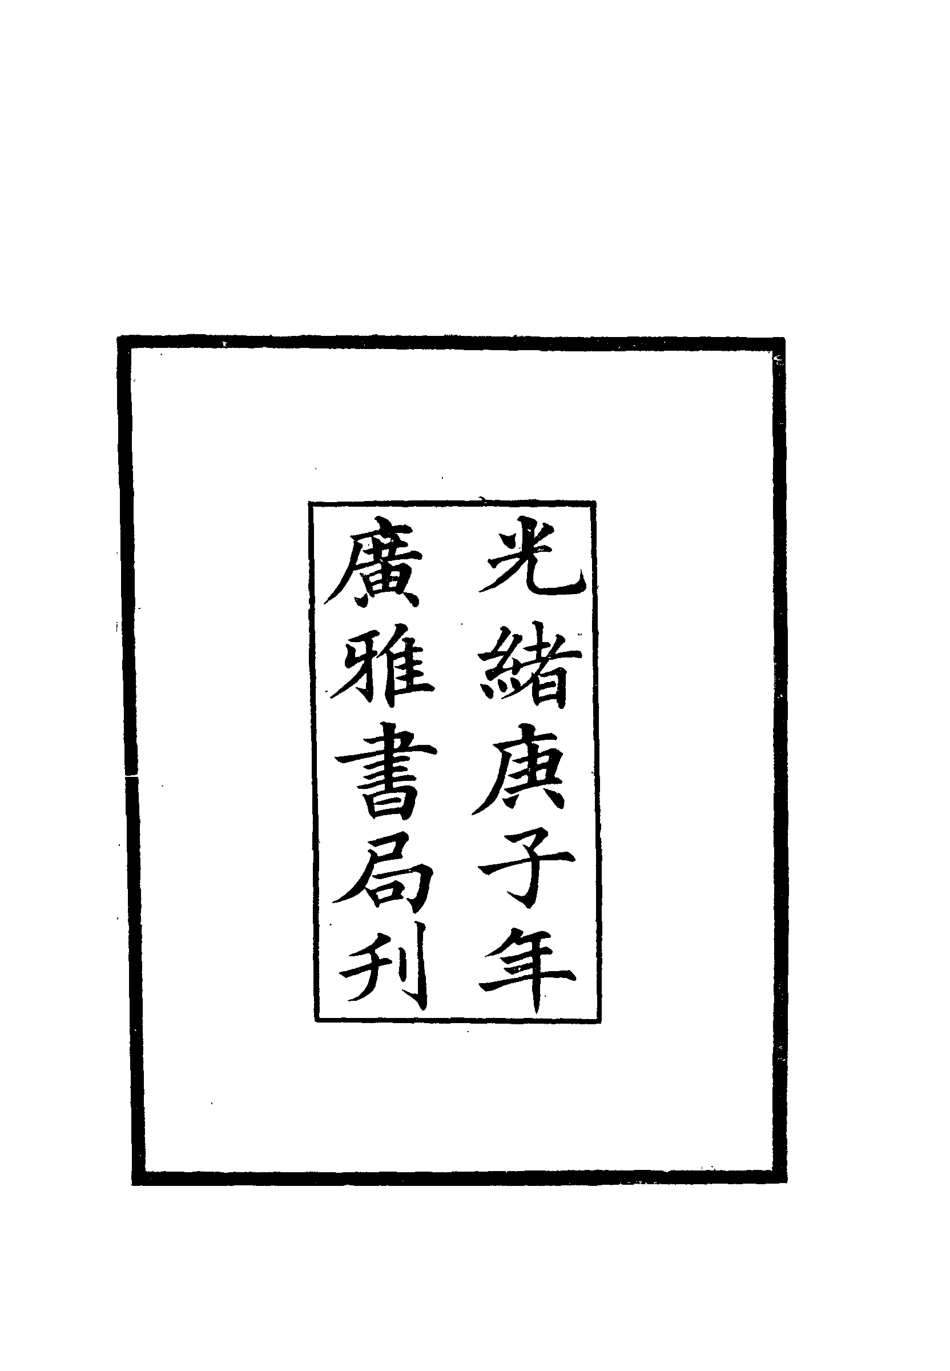 光緒庚子年
廣雅書局刋